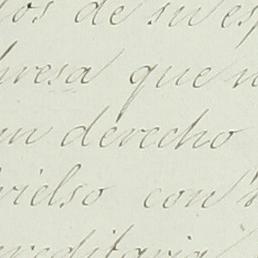 os de su es
presa que n
un derecho
vielso con
creditaria